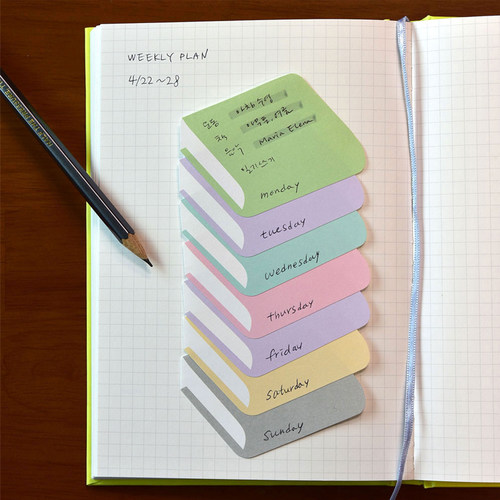 WEEKLY PLAN
4/22~28
운동 아침 수영
책
음악 Maria Elena
일기쓰기
monday
tuesday
wednesday
thursday
friday
saturday
sunday